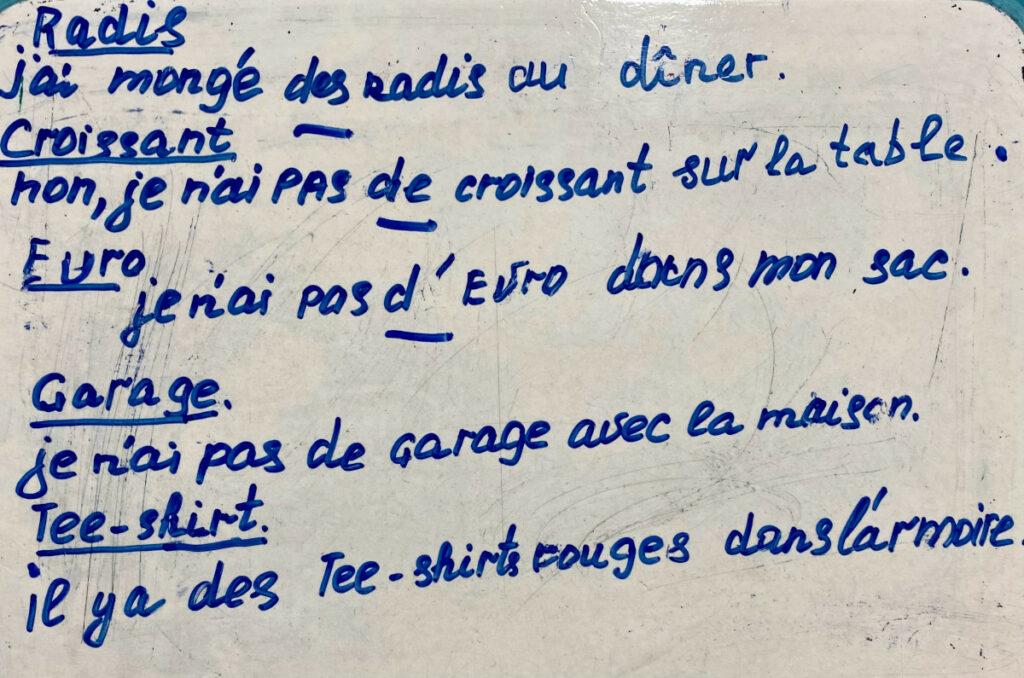 Radis
j'ai mangé des radis au dîner.
Croissant
non, je n'ai PAS de croissant sur la table.
Euro
je n'ai pas d'Euro dans mon sac.
Garage.
je n'ai pas de Garage avec la maison.
Tee-shirt.
il ya des Tee-shirts rouges dans l'armoire.